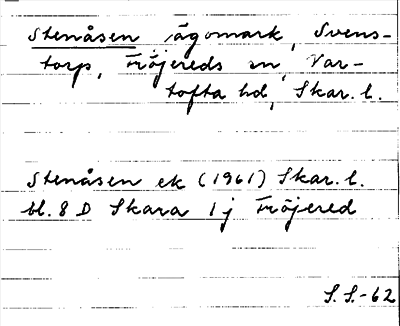 Stenåsen ägomark, Svens-
torp, Fröjereds sn, Var-
tofta hd, Skar. l.
Stenåsen ek (1961) Skar. l.
bl. 8 D Skara 1 j Fröjered
S. S.-62